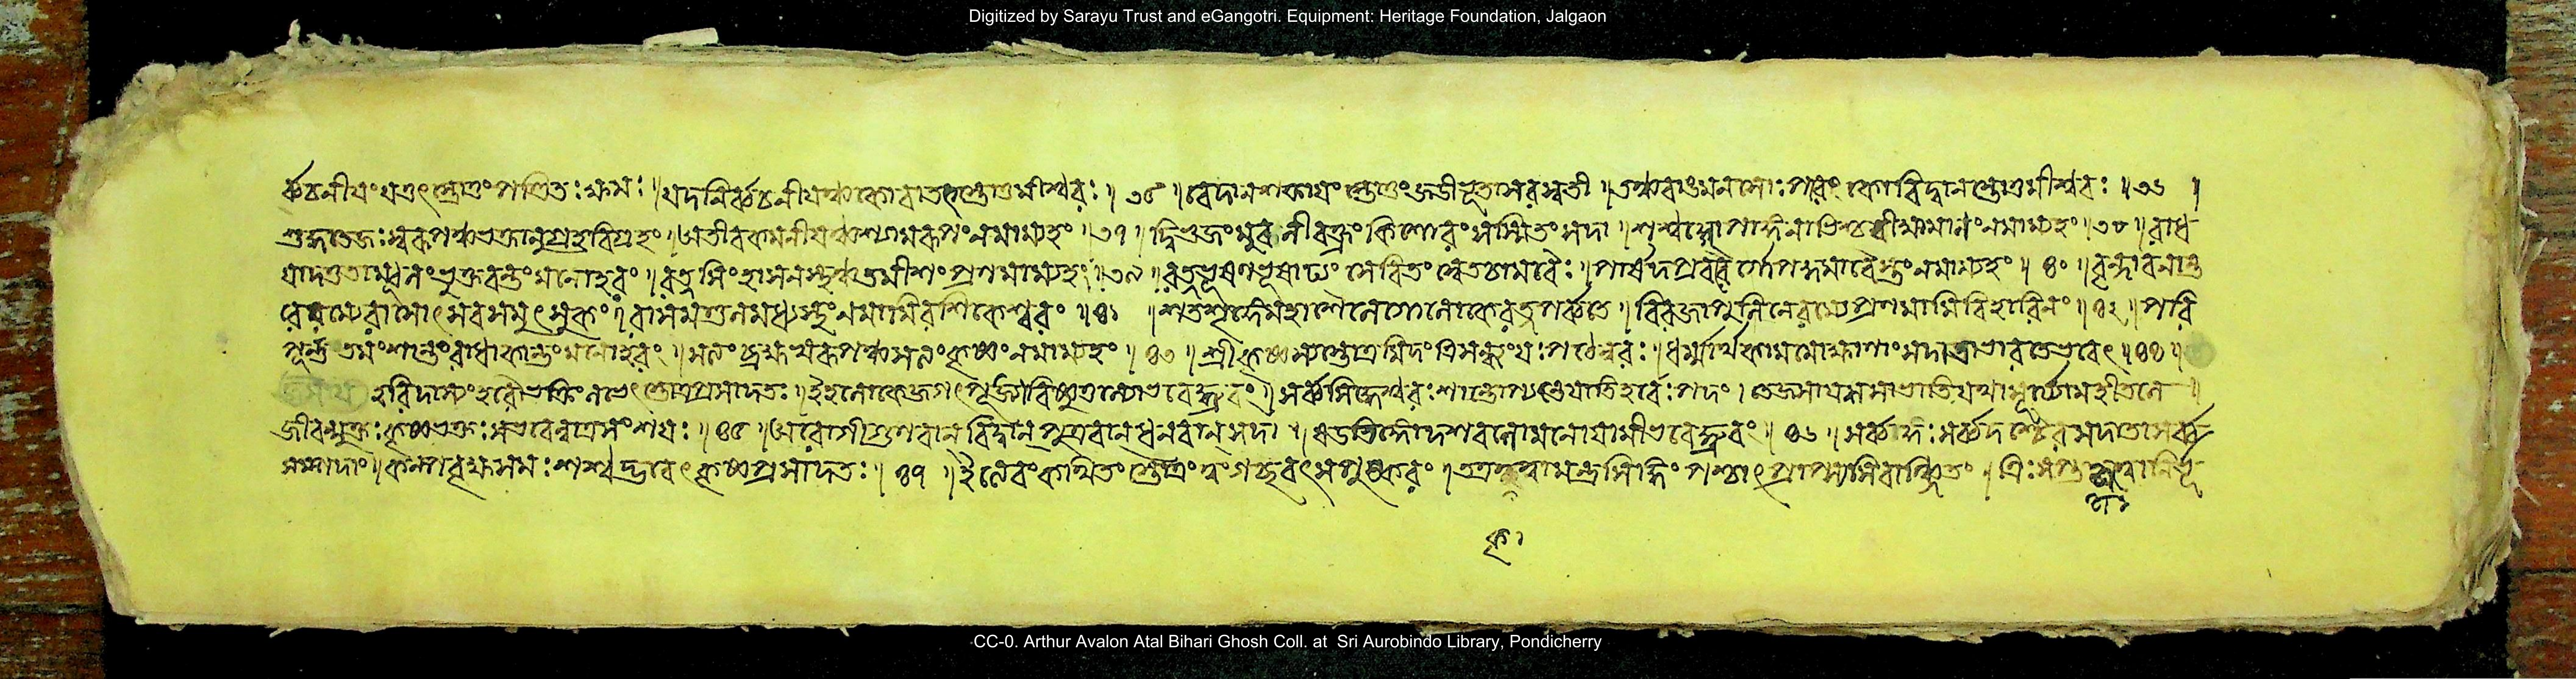 Digitized by Sarayu Trust and eGangotri. Equipment: Heritage Foundation, Jalgaon
র্ব্বচনীয়ং যত্তৎ স্তোতুং পণ্ডিতঃ ক্ষমঃ ॥ যদনির্ব্বচনীয়ঞ্চ কোবাতৎ স্তোতুমীশ্বরঃ ॥ ৩৫ ॥ বেদা নশক্তা যং স্তোতুং জড়ীভূতা সরস্বতী । তঞ্চ বাঙ্মনসোঃ পরং কো বিদ্বান স্তোতুমীশ্বরঃ ॥ ৩৬ ॥
শুদ্ধতেজঃ স্বরূপঞ্চ ভক্তানুগ্রহবিগ্রহং । অতীবকমনীয়ঞ্চ শ্যামরূপং নমাম্যহং । ৩৭ । দ্বিভুজং মুরলীবক্ত্রং কিশোরং সস্মিতং সদা । শশ্বদ্গোপাঙ্গনাভিশ্চ বীক্ষ্যমানং নমাম্যহং । ৩৮ ॥ রাধ
য়াদত্ততাম্বূলং ভুক্তবন্তং মনোহরং । রত্নসিংহাসনস্থঞ্চ তমীশং প্রণমাম্যহং । ৩৯ । রত্নভূষণভূষাঢ্যং সেবিতং শ্বেতচামরৈঃ । পার্ষদপ্রবরৈর্গোপকুমারৈস্তং নমাম্যহং ॥ ৪০ ॥ বৃন্দাবনান্ত
রেরম্যেরাসোৎসবসমুৎসুকং । রাসমণ্ডলমধ্যস্থং নমামিরসিকেশ্বরং ॥ ৪১ ॥ শতশৃঙ্গেমহাশৈলে গোলোকেরত্নপর্ব্বতে । বিরজাপুলিনেরম্যেপ্রণমামিবিহারিণং ॥ ৪২ ॥ পরি
পূর্ণতমং শান্তং রাধাকান্তং মনোহরং । সত্যং ব্রহ্মস্বরূপঞ্চ কৃষ্ণং নমাম্যহং ॥ ৪৩ । শ্রীকৃষ্ণস্যস্তোত্রমিদং ত্রিসন্ধ্যং যঃ পঠেন্নরঃ । ধর্ম্মার্থকামমোক্ষাণাং সদাতাভারতেভবেৎ ॥ ৪৪ ॥
হরিদাস্যং হরৌভক্তিং লভেৎ স্তোত্রপ্রসাদতঃ । ইহলোকেজগৎপূজ্যোবিষ্ণুতুল্যোভবেদ্ধ্রুবং । সর্ব্বসিদ্ধেশ্বরঃ শান্তো যাতিহরেঃ পদং । তেজসাযশসাভাতিযথাসূর্য্যোমহীতলে ॥
জীবন্মুক্তঃ কৃষ্ণভক্তঃ সভবেন্নাত্রসংশয়ঃ ॥ ৪৫ ॥ অরোগীগুণবান বিদ্বান পুত্রবান ধনবান সদা । ষড়ভিজ্ঞোদশবলোমনোযায়ীভবেদ্ধ্রুবং ॥ ৪৬ ॥ সর্ব্বজ্ঞঃ সর্ব্বদশ্চৈব সদাতাসর্ব্ব
সম্পদাং । কল্পবৃক্ষসমঃ শশ্বদ্ভবেৎ কৃষ্ণপ্রসাদতঃ । ৪৭ । ইত্যেবং কথিতং স্তোত্রং গচ্ছবৎসপুষ্করং । তত্র মন্ত্রসিদ্ধিং পশ্চাৎ প্রাপ্স্যসিবাঞ্ছিতং । ত্রিঃসপ্ত
CC-0. Arthur Avalon Atal Bihari Ghosh Coll. at Sri Aurobindo Library, Pondicherry